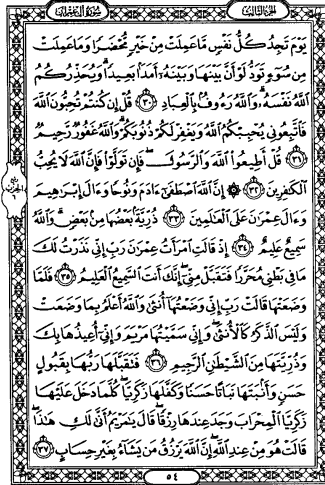 سورة آل عمران الجزء الثالث
يَوْمَ تَجِدُ كُلُّ نَفْسٍ مَّا عَمِلَتْ مِنْ خَيْرٍ مُّحْضَرًا وَمَا عَمِلَتْ
مِن سُوٓءٍ تَوَدُّ لَوْ أَنَّ بَيْنَهَا وَبَيْنَهُۥٓ أَمَدًۢا بَعِيدًا وَيُحَذِّرُكُمُ
ٱللَّهُ نَفْسَهُۥ وَٱللَّهُ رَءُوفٌۢ بِٱلْعِبَادِ ٣٠ قُلْ إِن كُنتُمْ تُحِبُّونَ ٱللَّهَ
فَٱتَّبِعُونِى يُحْبِبْكُمُ ٱللَّهُ وَيَغْفِرْ لَكُمْ ذُنُوبَكُمْ وَٱللَّهُ غَفُورٌ رَّحِيمٌ
٣١ قُلْ أَطِيعُوا۟ ٱللَّهَ وَٱلرَّسُولَ فَإِن تَوَلَّوْا۟ فَإِنَّ ٱللَّهَ لَا يُحِبُّ
ٱلْكَٰفِرِينَ ٣٢ ۞ إِنَّ ٱللَّهَ ٱصْطَفَىٰٓ ءَادَمَ وَنُوحًا وَءَالَ إِبْرَٰهِيمَ
وَءَالَ عِمْرَٰنَ عَلَى ٱلْعَٰلَمِينَ ٣٣ ذُرِّيَّةًۢ بَعْضُهَا مِنۢ بَعْضٍ وَٱللَّهُ
سَمِيعٌ عَلِيمٌ ٣٤ إِذْ قَالَتِ ٱمْرَأَتُ عِمْرَٰنَ رَبِّ إِنِّى نَذَرْتُ لَكَ
مَا فِى بَطْنِى مُحَرَّرًا فَتَقَبَّلْ مِنِّىٓ إِنَّكَ أَنتَ ٱلسَّمِيعُ ٱلْعَلِيمُ ٣٥ فَلَمَّا
وَضَعَتْهَا قَالَتْ رَبِّ إِنِّى وَضَعْتُهَآ أُنثَىٰ وَٱللَّهُ أَعْلَمُ بِمَا وَضَعَتْ
وَلَيْسَ ٱلذَّكَرُ كَٱلْأُنثَىٰ وَإِنِّى سَمَّيْتُهَا مَرْيَمَ وَإِنِّىٓ أُعِيذُهَا بِكَ
وَذُرِّيَّتَهَا مِنَ ٱلشَّيْطَٰنِ ٱلرَّجِيمِ ٣٦ فَتَقَبَّلَهَا رَبُّهَا بِقَبُولٍ
حَسَنٍ وَأَنۢبَتَهَا نَبَاتًا حَسَنًا وَكَفَّلَهَا زَكَرِيَّا كُلَّمَا دَخَلَ عَلَيْهَا
زَكَرِيَّا ٱلْمِحْرَابَ وَجَدَ عِندَهَا رِزْقًا قَالَ يَٰمَرْيَمُ أَنَّىٰ لَكِ هَٰذَا
قَالَتْ هُوَ مِنْ عِندِ ٱللَّهِ إِنَّ ٱللَّهَ يَرْزُقُ مَن يَشَآءُ بِغَيْرِ حِسَابٍ ٣٧
٥٤